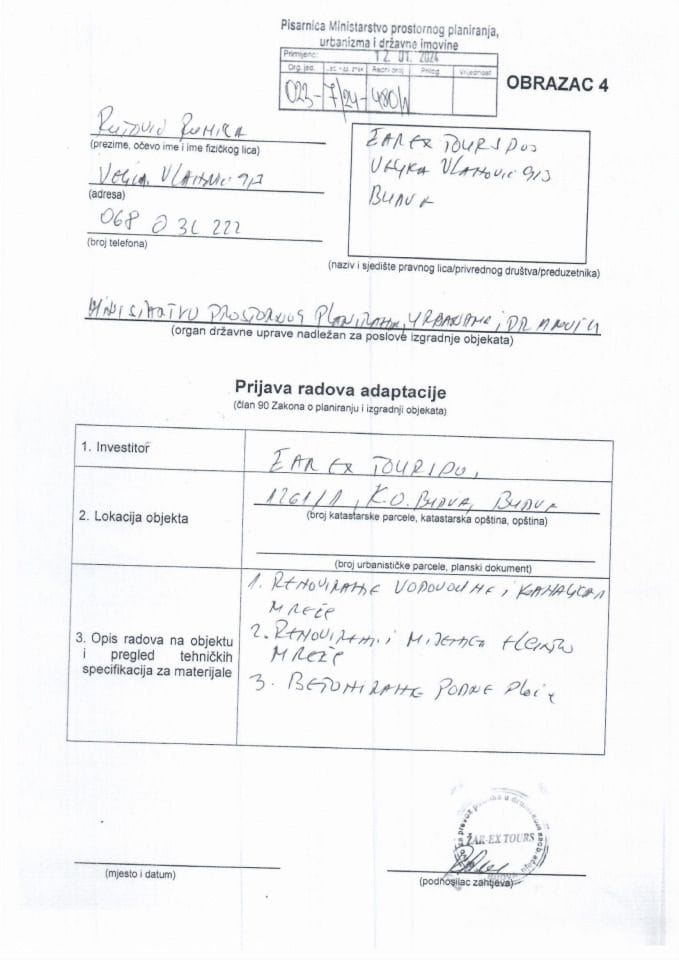 Pisarnica Ministarstvo prostornog planiranja,
urbanizma i državne imovine
Primljeno: 12. 01. 2024
Org. jed. Redni broj Prilog Vrijednost
023-7/24-480/1
OBRAZAC 4
(prezime, očevo ime i ime fizičkog lica)
(adresa)
068 031 222
(broj telefona)
ŽAR EX TOURS DOO
VELJKA VLAHOVIĆ
BUDVA
(naziv i sjedište pravnog lica/privrednog društva/preduzetnika)
MINISTARSTVO PROSTORNOG PLANIRANJA, URBANIZMA i
(organ državne uprave nadležan za poslove izgradnje objekata)
Prijava radova adaptacije
(član 90 Zakona o planiranju i izgradnji objekata)
1. Investitor
ŽAR EX TOURS DOO
2. Lokacija objekta
1261/1, K.O. BUDVA, BUDVA
(broj katastarske parcele, katastarska opština, opština)
(broj urbanističke parcele, planski dokument)
3. Opis radova na objektu
i pregled tehničkih
specifikacija za materijale
1. RENOVIRANJE VODOVODNE i
MREŽE
2. RENOVIRANJE i ELEKTRO
MREŽE
3. BETONIRANJE PODNE PLOČE
(mjesto i datum)
ŽAR-EX TOURS
(podnosilac zahtjeva)